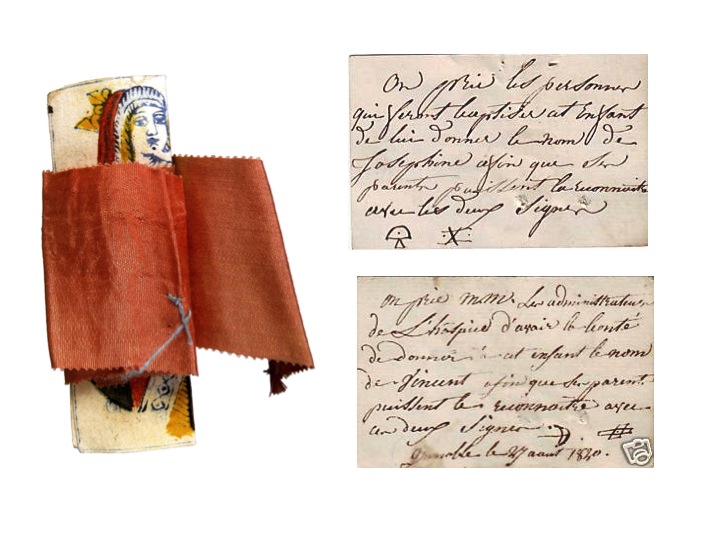 On prie les personnes
qui feront baptiser cet Enfant
de lui donner le nom de
Josephine afin que ses
parents puissent la reconnoitre
avec les deux signes
On prie M.M. Les administrateurs
de L'hospice d'avoir la bonté
de donner à cet enfant le nom
de Vincent afin que ses parents
puissent le reconnoitre avec
ces deux signes
Grenoble le 27 aout 1820.